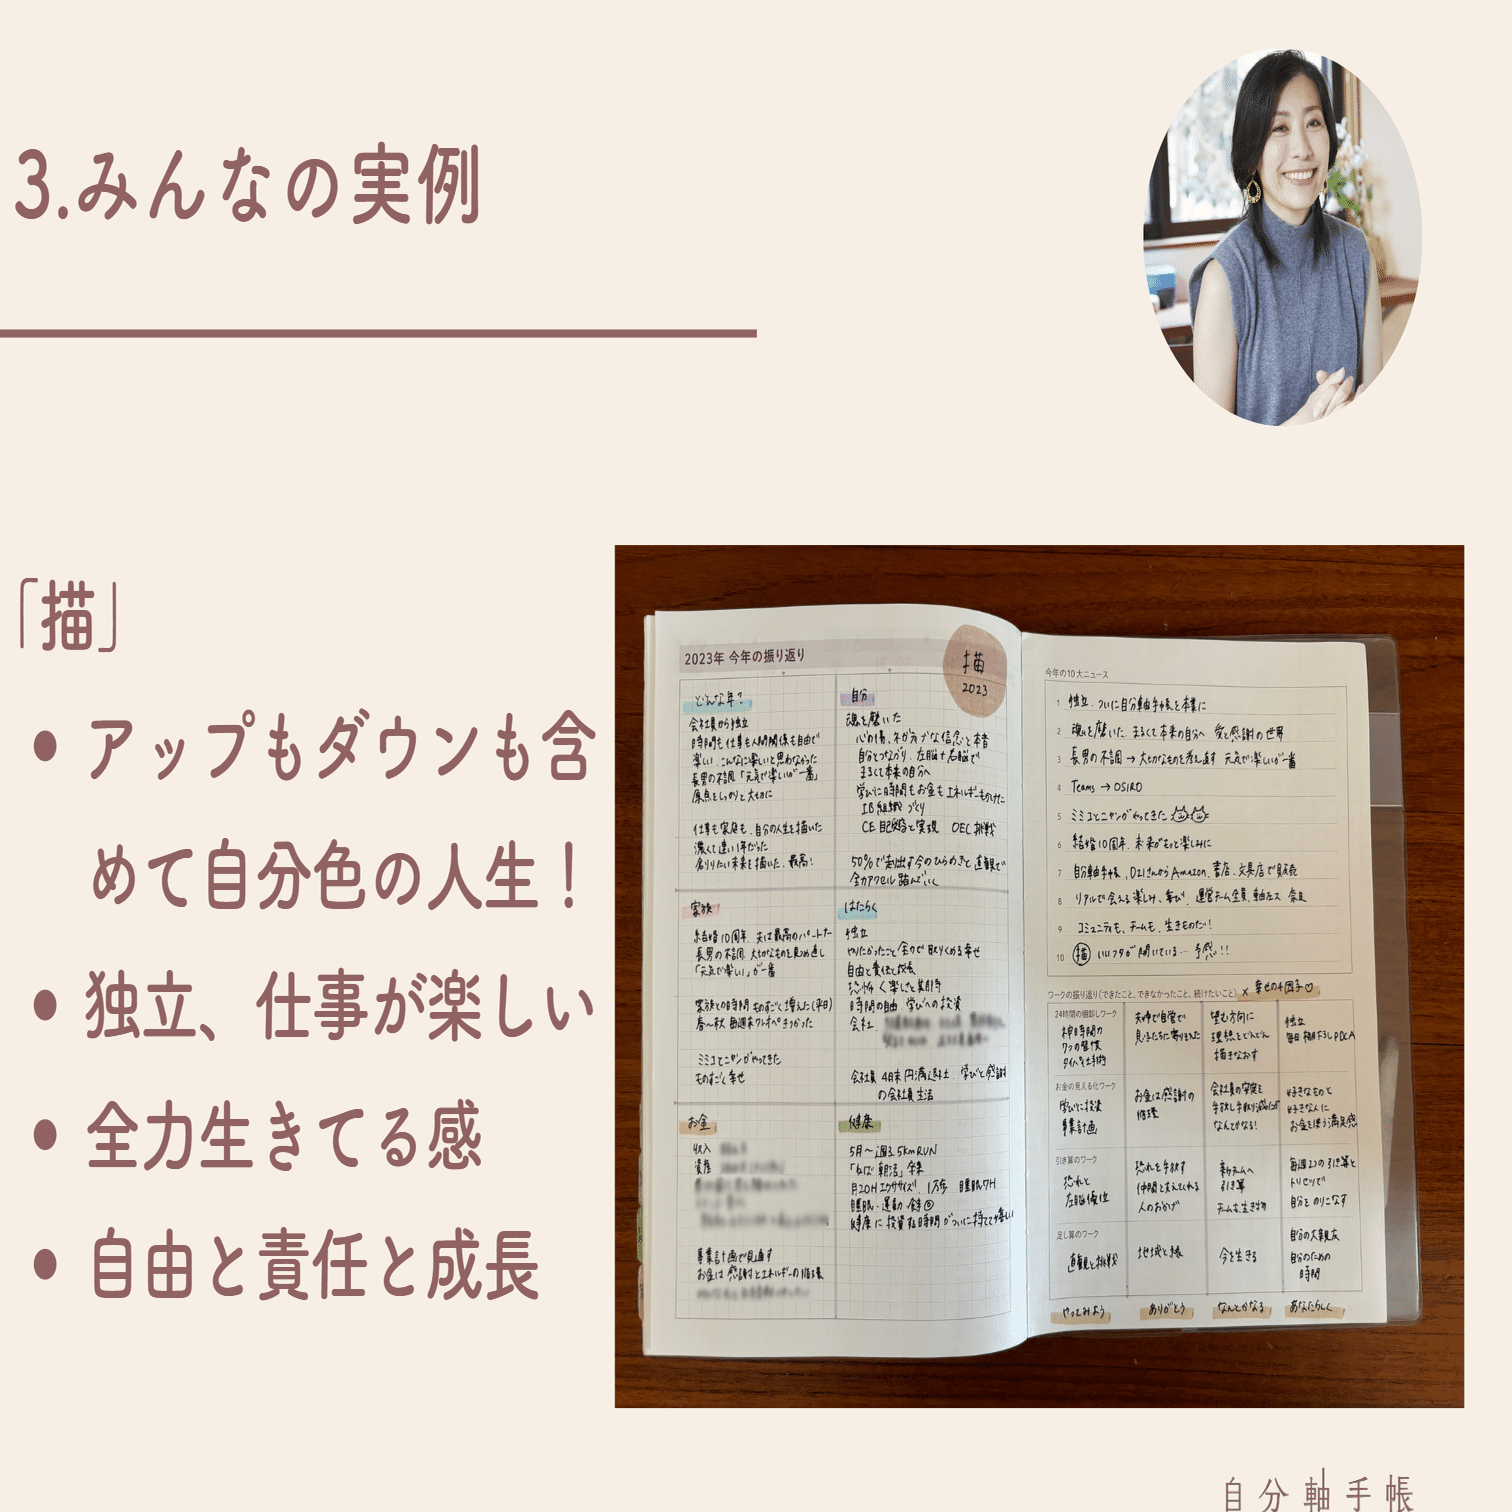 3.みんなの実例
「描」
• アップもダウンも含
めて自分色の人生！
• 独立、仕事が楽しい
• 全力生きてる感
• 自由と責任と成長
2023年 今年の振り返り
描
2023
どんな年？
会社員から独立
時間も仕事も人間関係も自由で
楽しい.こんなに楽しいと思わなかった
長男の不調「元気で楽しいが一番」
原点をしっかりと大切に
仕事も家庭も、自分の人生を描いた
濃くて速い1年だった
創りたい未来を描いた.最高！
自分
魂を磨いた
心の傷、ネガティブな信念と本音
自分とつながり、左脳+右脳で
まるくて本来の自分へ
学びに時間もお金もエネルギーもかけた
IB組織づくり
OEL挑戦
50%で走り出す今のひらめきと直観で
全力アクセル踏んでいく
家族
結婚10周年.夫は最高のパートナー
長男の不調.大切なものを見つめ直し
「元気で楽しい」が一番
家族との時間ものすごく増えた(平日)
春〜秋 毎週末ワンオペきつかった
ミミコとニャンがやってきた
ものすごく幸せ
はたらく
独立
やりたかったこと全力で取りくめる幸せ
自由と責任と成長
時間の自由 学びへの投資
会社
会社員 4月末円満退社.学びと感謝
の会社員生活
お金
収入
資産
事業計画で見通す
お金は感謝とエネルギーの循環
健康
5月〜週3.5kmRUN
1万歩 睡眠7H
睡眠・運動・食事
健康に投資する時間がついに持てて嬉しい
今年の10大ニュース
1 独立.ついに自分軸手帳を本業に
2 魂を磨いた.まるくて本来の自分へ 愛と感謝の世界
3 長男の不調→大切なものを考え直す 元気で楽しいが一番
4 Teams→OSIRO
5 ミミコとニャンがやってきた
6 結婚10周年.未来がもっと楽しみに
7 自分軸手帳、D21さんからAmazon、書店、文具店で販売
8 リアルで会える楽しみ、喜び、運営チーム全員、軸左ス 奈良
9 コミュニティも、チームも、生きものだ！
10 描 いいフタが開いている… 予感!!
ワークの振り返り(できたこと、できなかったこと、続けたいこと) × 幸せの4因子♡
24時間の棚卸しワーク
神時間の
7つの習慣
タイパと仕事術
夫婦で自営で
見る子たちに寄りそえた
望む方向に
理想をどんどん
描きなおす
独立
毎日棚下ろしPDCA
お金の見える化ワーク
学びに投資
事業計画
お金は感謝の
循環
会社員の安定を
手放し手取り減だけど
なんとかなる！
好きなものと
好きな人に
お金を使う満足感
引き算のワーク
恐れと
左脳優位
恐れを手放す
仲間と支えてくれる
人のおかげ
新チームへ
引き算
チームも生き物
毎週2つの引き算と
トリセツで
自分をのりこなす
足し算のワーク
直観と挑戦
地域と縁
今を生きる
自分の大親友
自分のための
時間
やってみよう
ありがとう
なんとかなる
あなたらしく
自分軸手帳